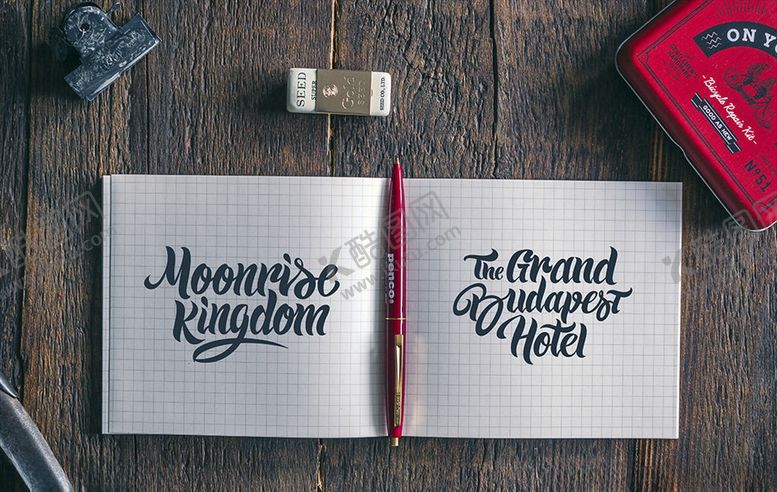 SEED
SUPER
Gold
SEED
SEED CO., LTD.
ON Y
Bicycle Repair Kit
GOOD AS NEW
Nº51
Moonrise
Kingdom
penco
The Grand
Budapest
Hotel